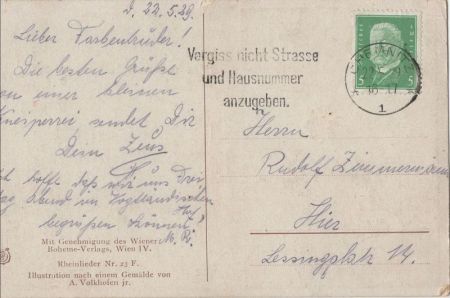 d. 22.5.29.
Lieber Farbenbruder!
Die besten Grüße
von einer kleinen
Kneiperei, sendet Dir
Dein Zeus
Ich hoffe daß wir uns Frei-
tag Abend im Vogtländischen
Hof,
begrüßen können
M. R.
Mit Genehmigung des Wiener
Boheme-Verlags, Wien IV.
Rheinlieder Nr. 23 F.
Illustration nach einem Gemälde von
A. Volkhofen jr.
Vergiss nicht Strasse
und Hausnummer
anzugeben.
CHEMNITZ
1
5 5
Herrn
Rudolf Zimmermann
Hier
Lessingplatz 14.